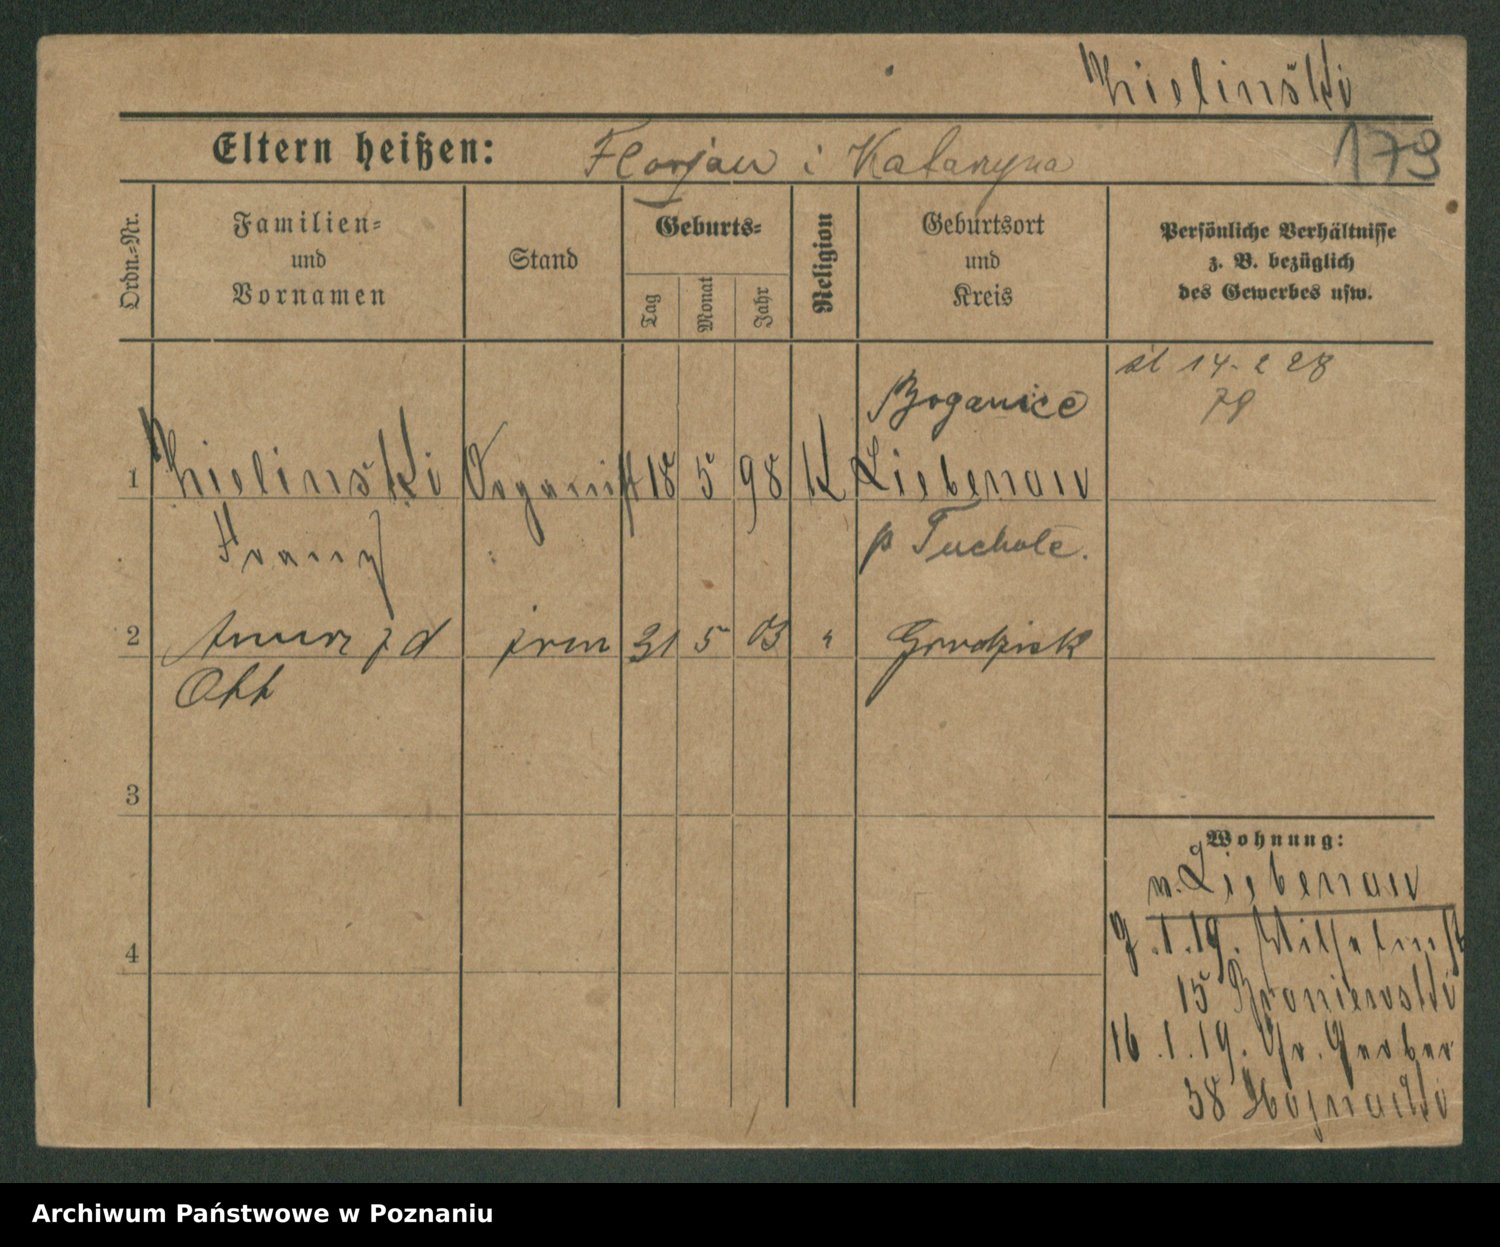 Kielinski
Eltern heißen: Florjan i Katarzyna
179
Ordn.=Nr.
Familien=
und
Vornamen
Stand
Geburts=
Tag
Monat
Jahr
Religion
Geburtsort
und
Kreis
Persönliche Verhältnisse
z. B. bezüglich
des Gewerbes usw.
14. 2 28
79
1 Kielinski 18 5 98 K Liebenau
Franz
p Tuchole.
2 z d 31 5 03 " Grodzisk
Ott
3
Wohnung:
n. Liebenau
4
9.1.19. Wilhelmst
15 Broniewski
16.1.19. Gr. Gerber
38 Hojnacki
Archiwum Państwowe w Poznaniu